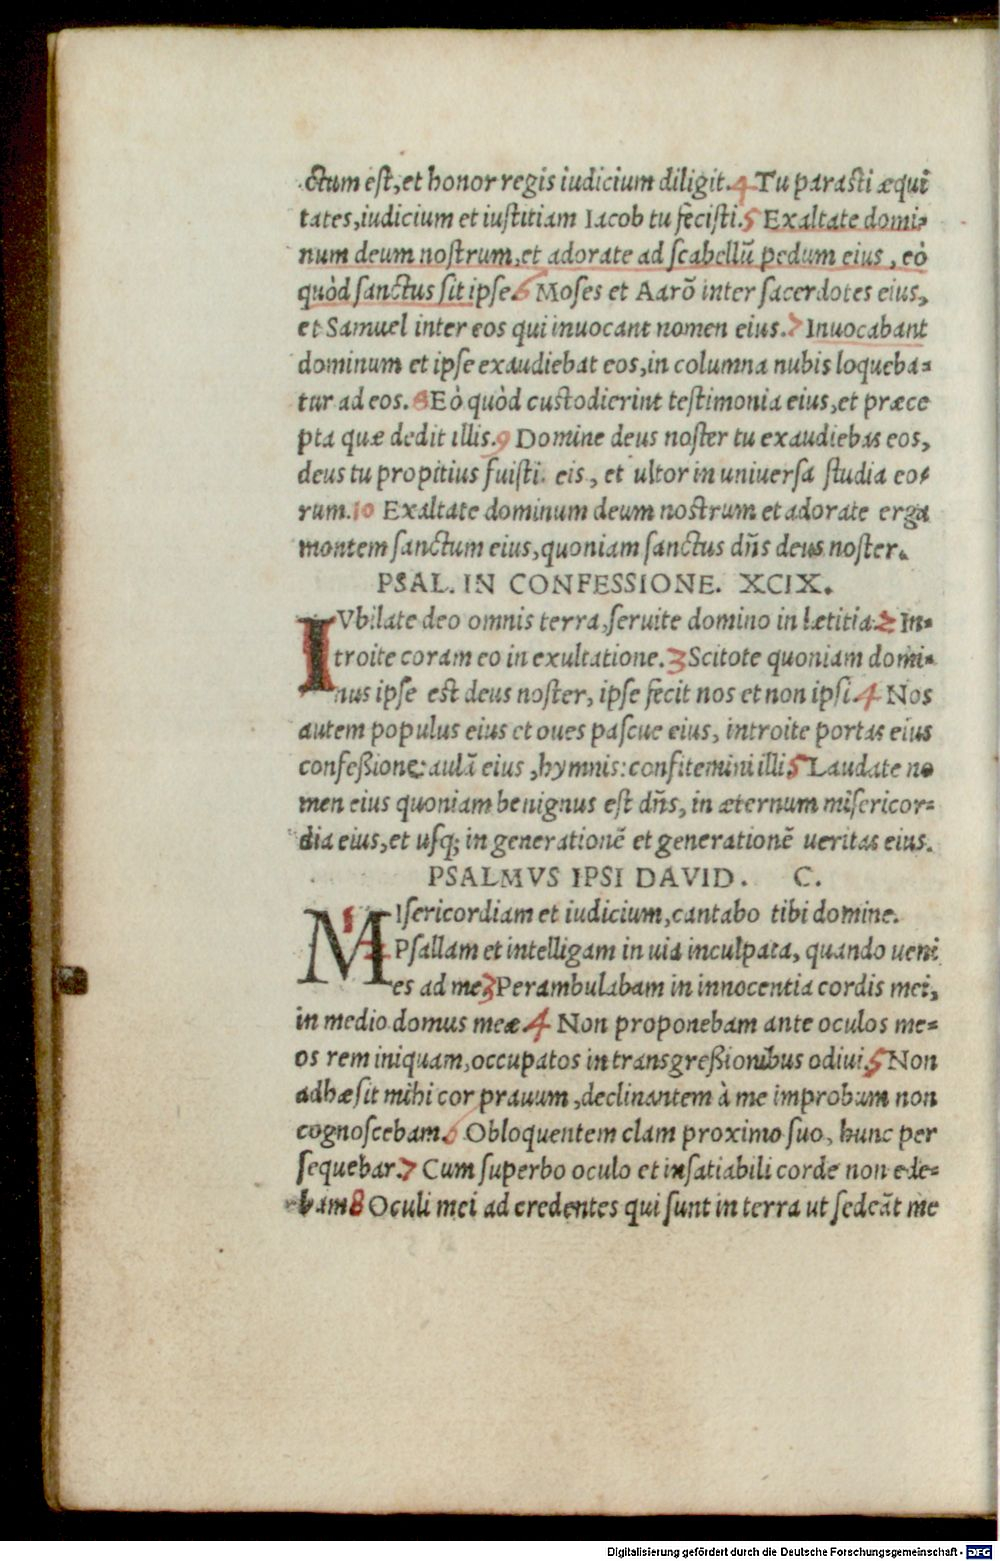 ctum est, et honor regis iudicium diligit. 4 Tu parasti æqui
tates, iudicium et iustitiam Iacob tu fecisti. 5 Exaltate domi-
num deum nostrum, et adorate ad scabellũ pedum eius, eò
quòd sanctus sit ipse. 6 Moses et Aarõ inter sacerdotes eius,
et Samuel inter eos qui inuocant nomen eius. 7 Inuocabant
dominum et ipse exaudiebat eos, in columna nubis loqueba-
tur ad eos. 8 Eò quòd custodierint testimonia eius, et præce
pta quæ dedit illis. 9 Domine deus noster tu exaudiebas eos,
deus tu propitius fuisti eis, et ultor in universa studia eo-
rum. 10 Exaltate dominum deum nostrum et adorate erga
montem sanctum eius, quoniam sanctus dñs deus noster.
PSAL. IN CONFESSIONE. XCIX.
IVbilate deo omnis terra, seruite domino in lætitia. 2 In-
troite coram eo in exultatione. 3 Scitote quoniam domi-
nus ipse est deus noster, ipse fecit nos et non ipsi. 4 Nos
autem populus eius et oues pascue eius, introite portas eius
confeßione: aulã eius, hymnis: confitemini illi. 5 Laudate no
men eius quoniam benignus est dñs, in æternum misericor-
dia eius, et usq; in generationẽ et generationẽ ueritas eius.
PSALMVS IPSI DAVID. C.
MIsericordiam et iudicium, cantabo tibi domine.
Psallam et intelligam in uia inculpata, quando ueni
es ad me 3 Perambulabam in innocentia cordis mei,
in medio domus meæ. 4 Non proponebam ante oculos me-
os rem iniquam, occupatos in transgreßionibus odiui. 5 Non
adhæsit mihi cor prauum, declinantem à me improbum non
cognoscebam. 6 Obloquentem clam proximo suo, hunc per
sequebar. 7 Cum superbo oculo et insatiabili corde non ede-
bam 8 Oculi mei ad credentes qui sunt in terra ut sedeãt me
Digitalisierung gefördert durch die Deutsche Forschungsgemeinschaft - DFG